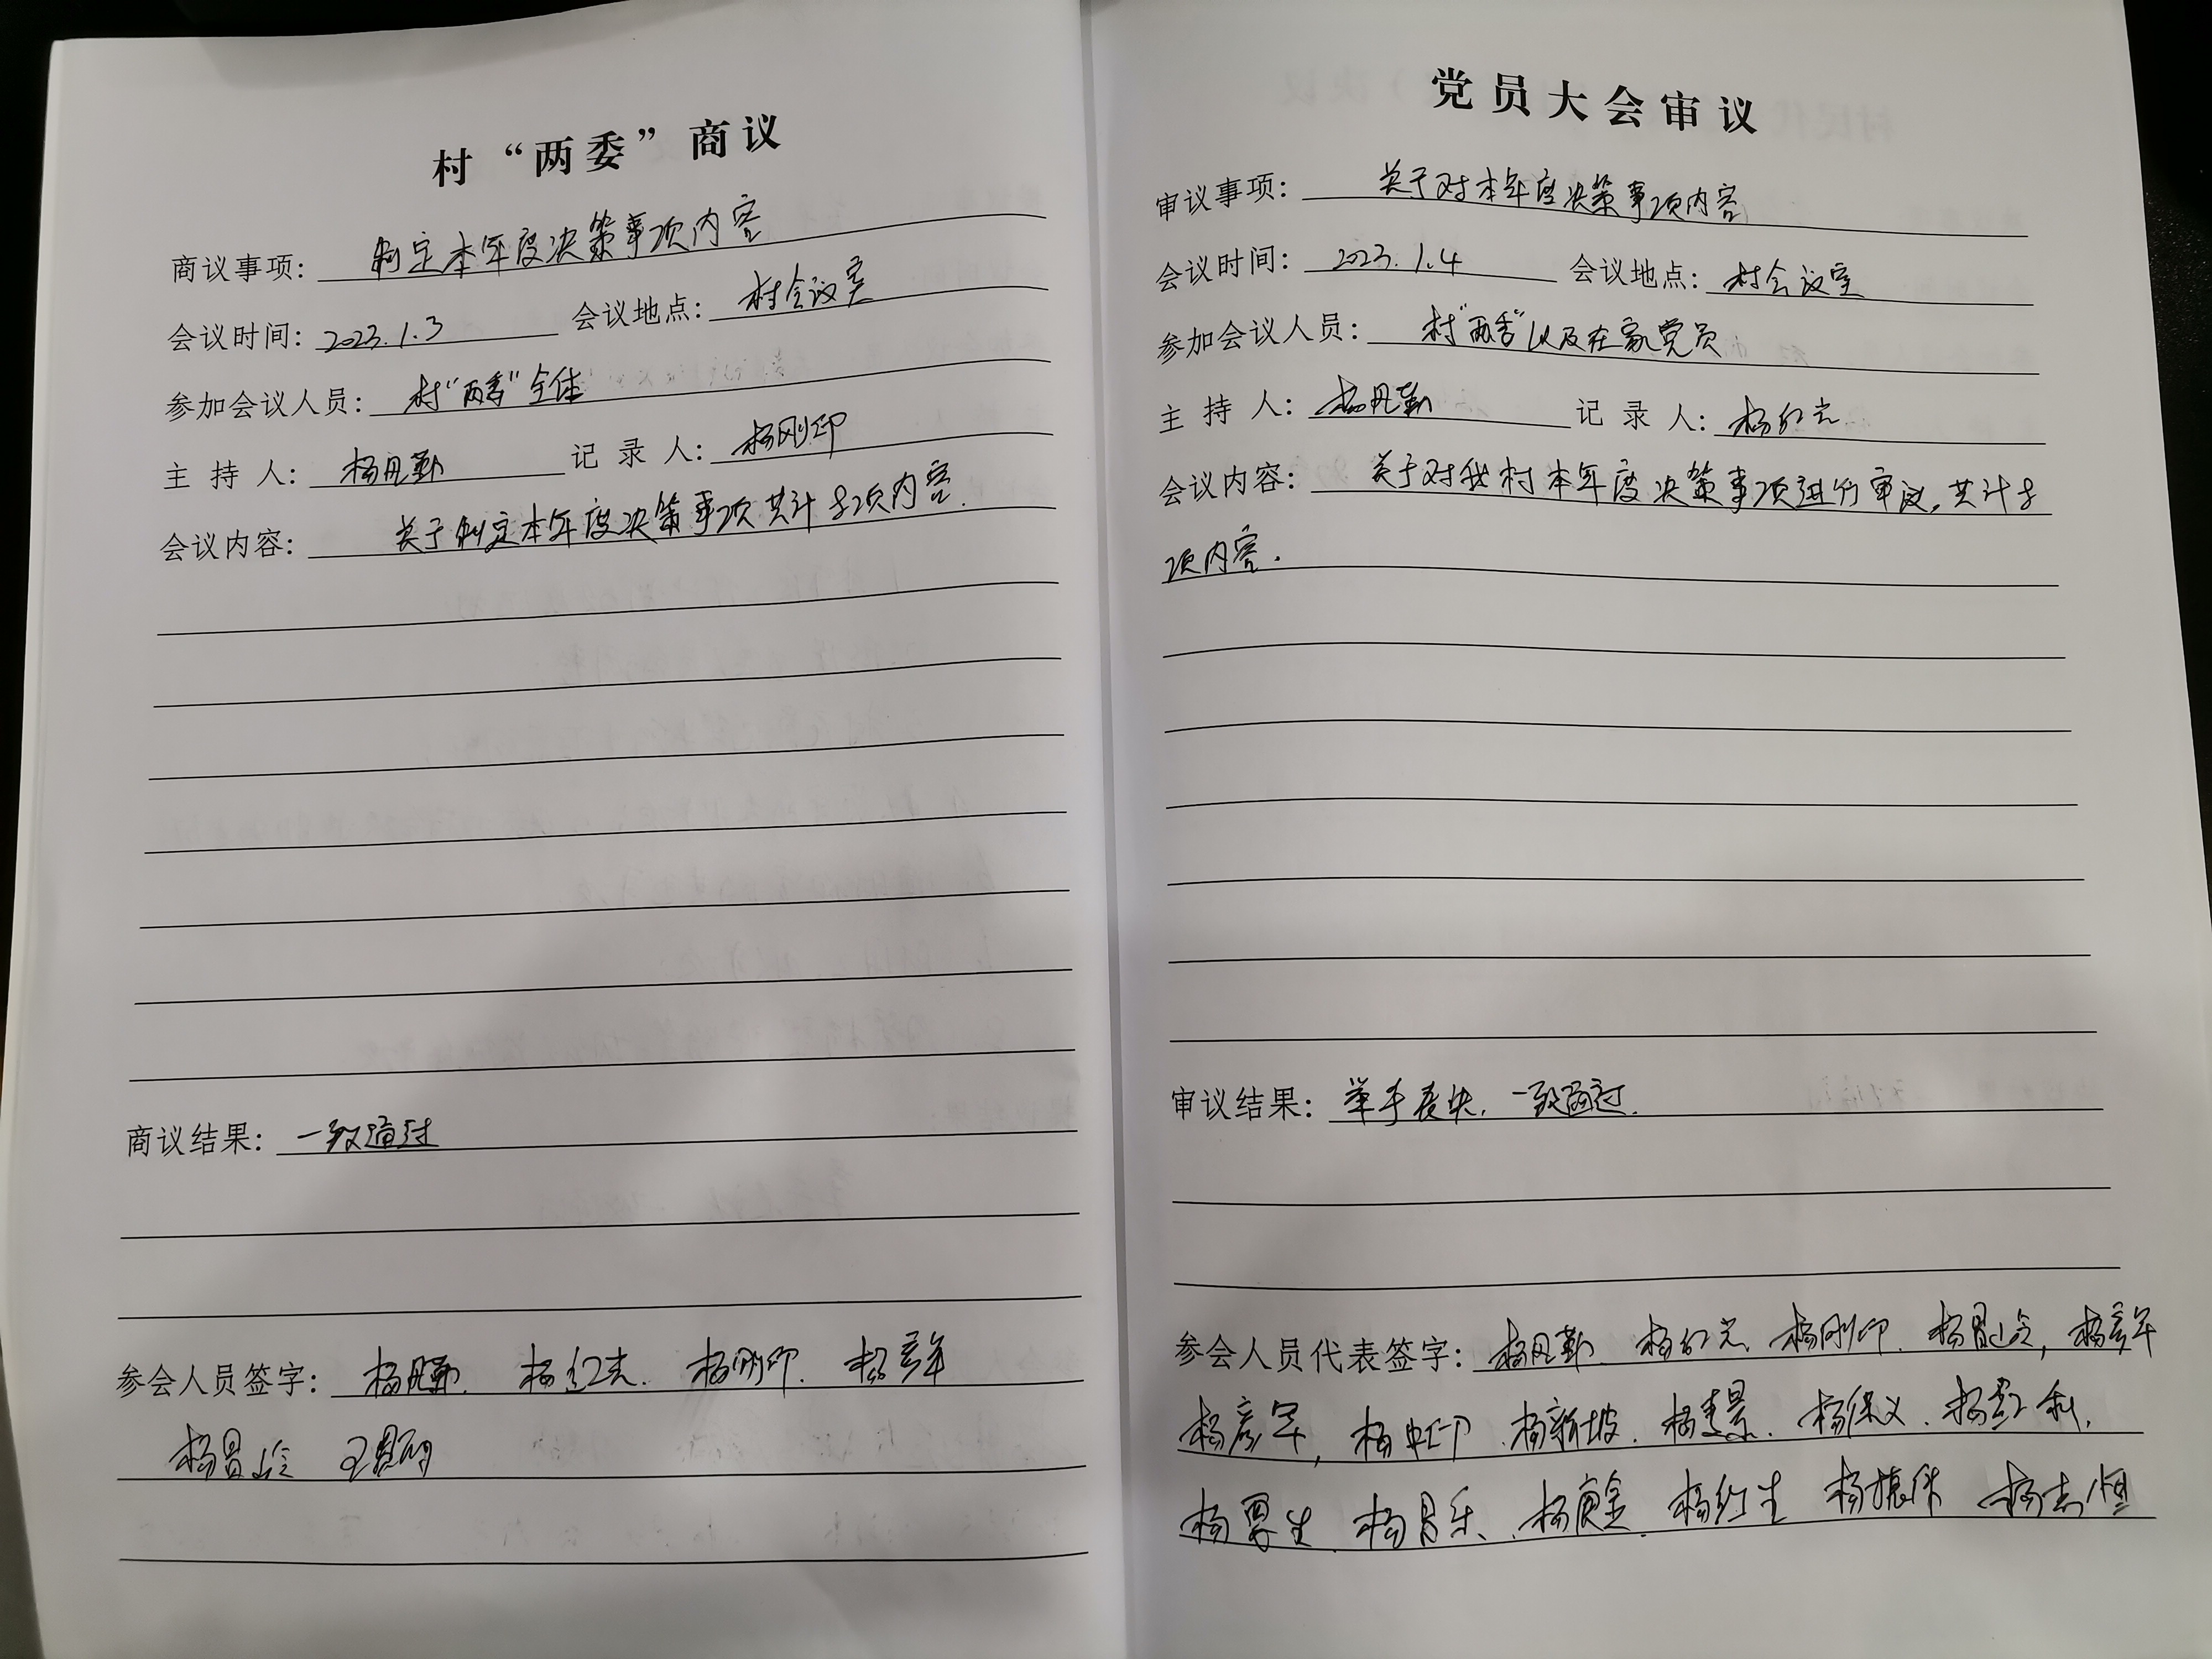 村“两委”商议
商议事项： 制定本年度决策事项内容
会议时间：2023.1.3 会议地点：村会议室
参加会议人员：村“两委”全体
主持人：杨凡勤 记录人：杨刚印
会议内容： 关于制定本年度决策事项共计8项内容.
商议结果：一致通过
参会人员签字：杨凡勤. 杨红光. 杨刚印. 杨彦军
杨昌
党员大会审议
审议事项： 关于对本年度决策事项内容
会议时间：2023.1.4 会议地点：村会议室
参加会议人员：村“两委”以及在家党员
主持人：杨凡勤 记录人：杨红光
会议内容： 关于对我村本年度决策事项进行审议，共计8
项内容.
审议结果：举手表决，一致通过.
参会人员代表签字：杨凡勤 杨红光. 杨刚印. 杨彦军
杨彦军，杨新坡. 杨建景. 杨保义.
杨红生 杨振伟 杨志恒